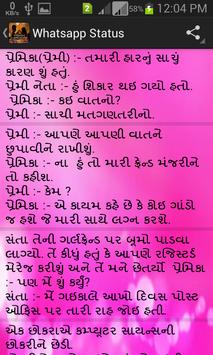 0 KB/s 12:04 PM
Whatsapp Status
પ્રેમિકા(પ્રેમી) :- તમારી હારનું સાચું
કારણ શું હતું.
પ્રેમી નેતા :- હું શિકાર થઇ ગયો હતો.
પ્રેમિકા :- કઇ વાતનો?
પ્રેમી :- સાચી મતગણતરીનો.
પ્રેમી :- આપણે આપણી વાતને
છુપાવીને રાખીશું.
પ્રેમિકા :- ના હું તો મારી ફ્રેન્ડ મંજરીને
તો કહીશ.
પ્રેમી :- કેમ ?
પ્રેમિકા :- એ કાયમ કહે છે કે કોઇ ગાંડો
જ હશે જે મારી સાથે લગ્ન કરશે.
સંતા તેની ગર્લફ્રેન્ડ પર બૂમો પાડવા
લાગ્યો. તેં કીધું હતું કે આપણે રજિસ્ટર્ડ
મેરેજ કરીશું અને તે મને છેતર્યો પ્રેમિકા
:- પણ મેં શું કર્યું?
સંતા :- મેં ગઇકાલે આખો દિવસ પોસ્ટ
ઓફિસ પર તારી રાહ જોઇ હતી.
એક છોકરાએ કમ્પ્યૂટર સાયન્સની
છોકરીને છેડી.